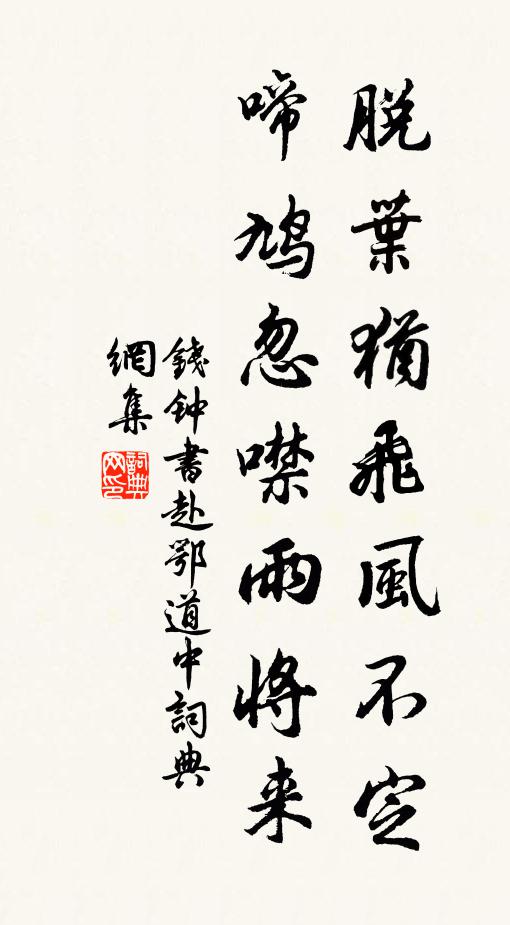 脱葉猶飛風不定
啼鳩忽噤雨將来
錢钟書赴鄂道中詞典
網集
詞典
网印